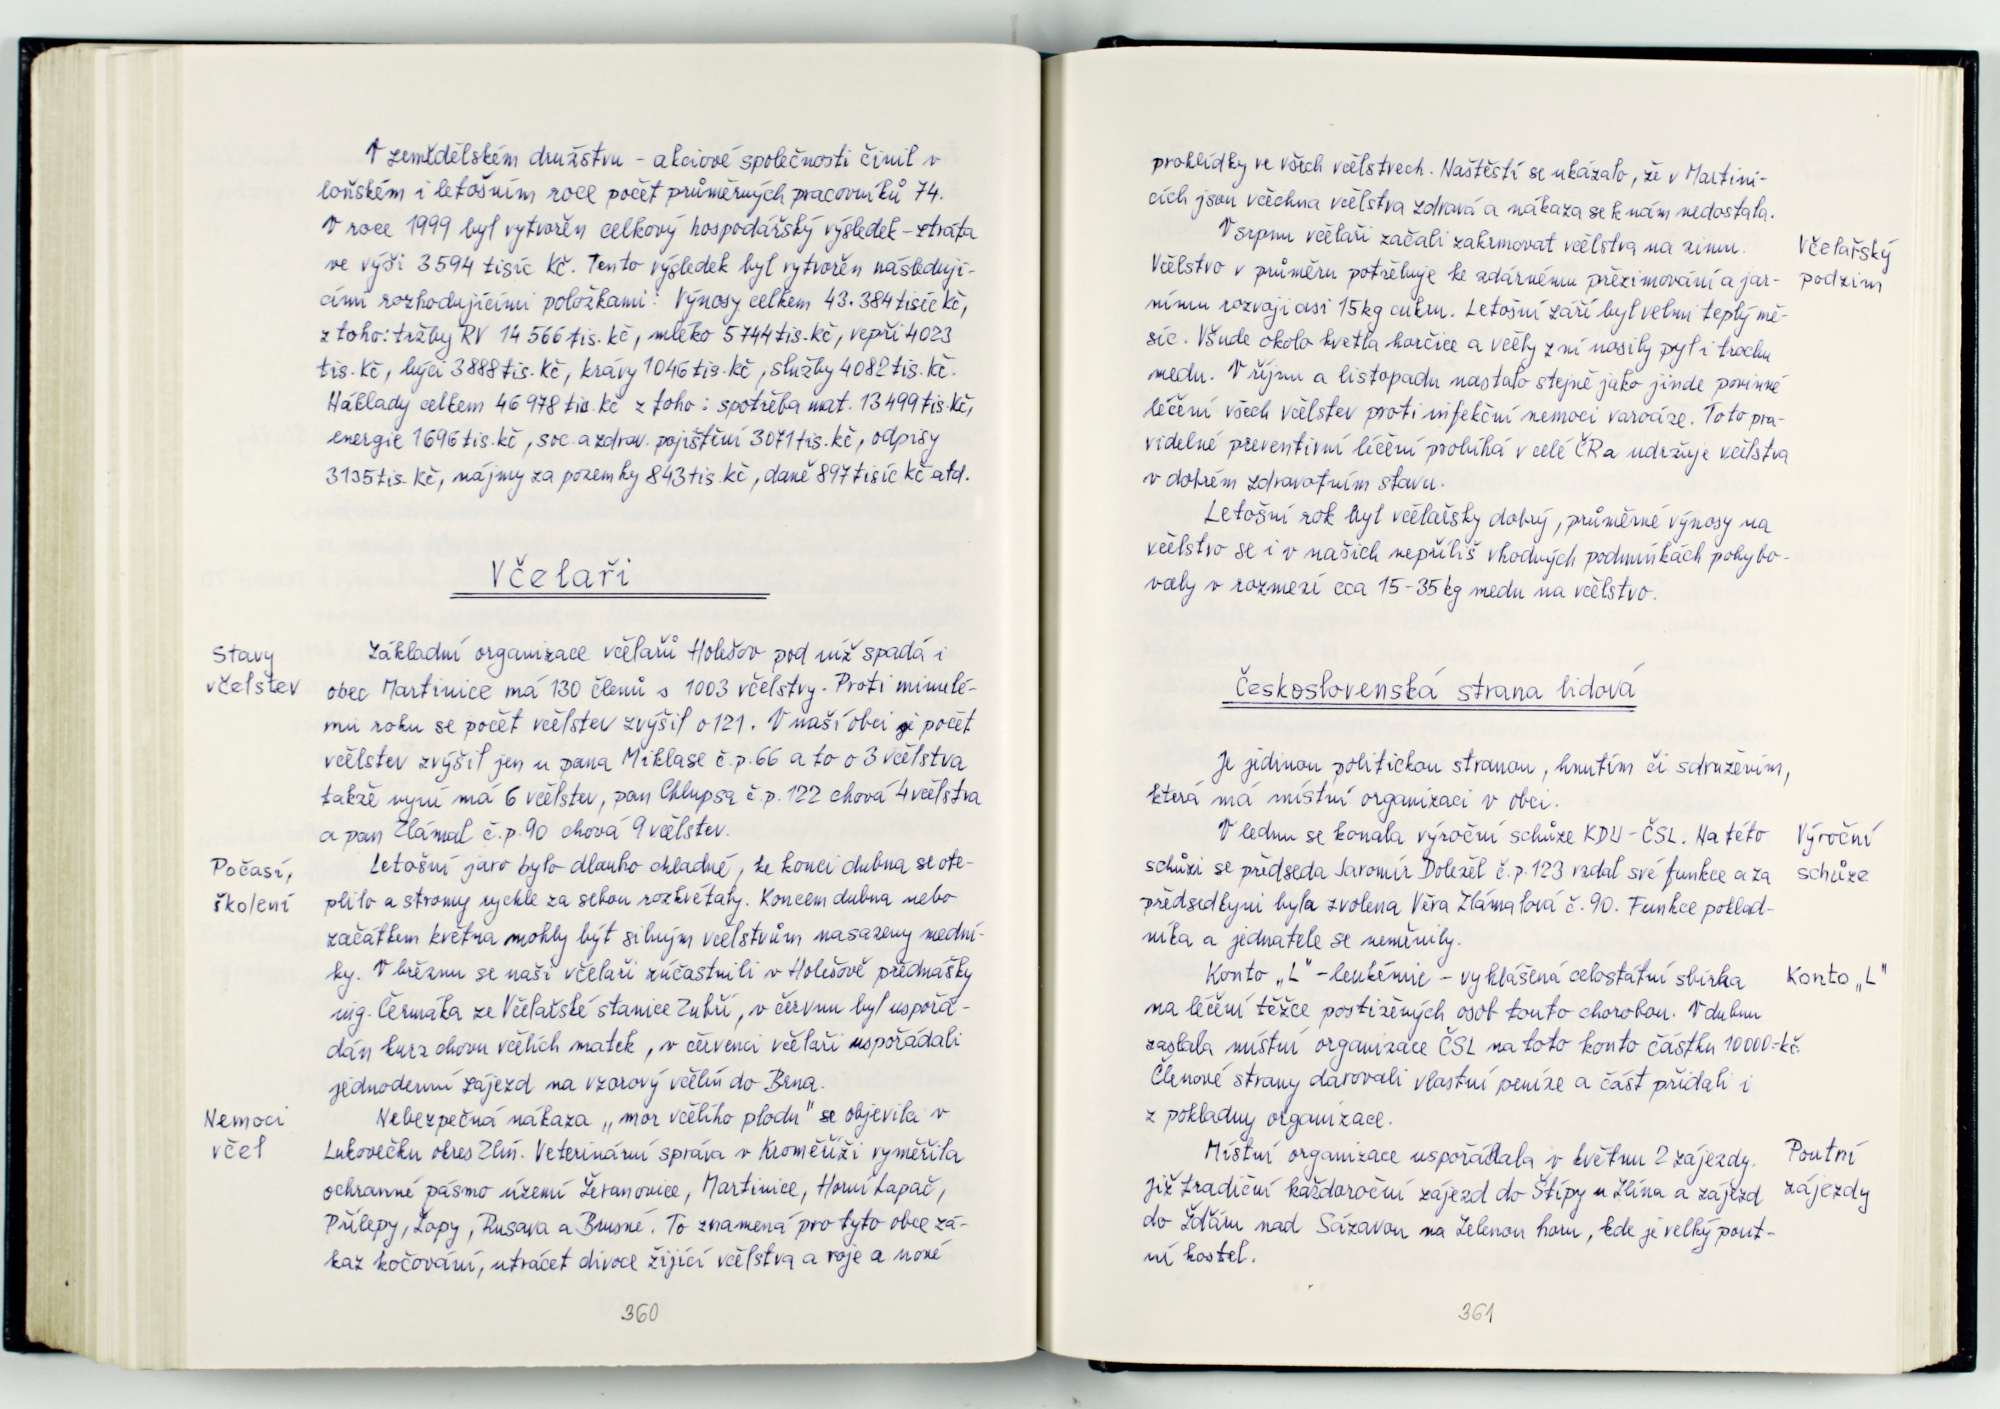 V zemědělském družstvu - akciové společnosti činil v
loňském i letošním roce počet průměrných pracovníků 74.
V roce 1999 byl vytvořen celkový hospodářský výsledek - ztráta
ve výši 3594 tisíc Kč. Tento výsledek byl vytvořen následují-
cími rozhodujícími položkami: Výnosy celkem 43.384 tisíc Kč,
z toho: tržby RV 14 566 tis. Kč, mléko 5744 tis. Kč, vepři 4023
tis. Kč, býci 3888 tis. Kč, krávy 1046 tis. Kč, služby 4082 tis. Kč.
Náklady celkem 46 978 tis. Kč z toho: spotřeba mat. 13 499 tis. Kč,
energie 1696 tis. Kč, soc. a zdrav. pojištění 3071 tis. Kč, odpisy
3135 tis. Kč, nájmy za pozemky 843 tis. Kč, daně 897 tisíc Kč atd.
Včelaři
Stavy
včelstev
Základní organizace včelařů Holešov pod níž spadá i
obec Martinice má 130 členů s 1003 včelstvy. Proti minulé-
mu roku se počet včelstev zvýšil o 121. V naší obci je počet
včelstev zvýšil jen u pana Miklase č.p. 66 a to o 3 včelstva
takže nyní má 6 včelstev, pan Chlupsa č.p. 122 chová 4 včelstva
a pan Zlámal č.p. 90 chová 9 včelstev.
Počasí,
školení
Letošní jaro bylo dlouho chladné, ke konci dubna se ote-
plilo a stromy rychle za sebou rozkvétaly. Koncem dubna nebo
začátkem května mohly být silným včelstvům nasazeny mední-
ky. V březnu se naši včelaři zúčastnili v Holešově přednášky
ing. Čermáka ze Včelařské stanice Zubří, v červnu byl uspořá-
dán kurz chovu včelích matek, v červenci včelaři uspořádali
jednodenní zájezd na vzorový včelín do Brna.
Nemoci
včel
Nebezpečná nákaza „mor včelího plodu" se objevila v
Lukovečku okres Zlín. Veterinární správa v Kroměříži vyměřila
ochranné pásmo území Žeranovice, Martinice, Horní Lapač,
Přílepy, Žopy, Rusava a Brusné. To znamená pro tyto obce zá-
kaz kočování, utrácet divoce žijící včelstva a roje a nové
360
prohlídky ve všech včelstvech. Naštěstí se ukázalo, že v Martini-
cích jsou včechna včelstva zdravá a nákaza se k nám nedostala.
Včelařský
podzim
V srpnu včelaři začali zakrmovat včelstva na zimu.
Včelstvo v průměru potřebuje ke zdárnému přezimování a jar-
nímu rozvoji asi 15 kg cukru. Letošní září byl velmi teplý mě-
síc. Všude okolo kvetla hořčice a včely z ní nosily pyl i trochu
medu. V říjnu a listopadu nastalo stejně jako jinde povinné
léčení všech včelstev proti infekční nemoci varoáze. Toto pra-
videlné preventivní léčení probíhá v celé ČR a udržuje včelstva
v dobrém zdravotním stavu.
Letošní rok byl včelařsky dobrý, průměrné výnosy na
včelstvo se i v našich nepříliš vhodných podmínkách pohybo-
valy v rozmezí cca 15-35 kg medu na včelstvo.
Československá strana lidová
Je jedinou politickou stranou, hnutím či sdružením,
která má místní organizaci v obci.
Výroční
schůze
V lednu se konala výroční schůze KDU-ČSL. Na této
schůzi se předseda Jaromír Doležel č.p. 123 vzdal své funkce a za
předsedkyni byla zvolena Věra Zlámalová č. 90. Funkce poklad-
níka a jednatele se neměnily.
Konto „L"
Konto „L" - leukémie - vyhlášená celostátní sbírka
na léčení těžce postižených osob touto chorobou. V dubnu
zaslala místní organizace ČSL na toto konto částku 10000=Kč.
Členové strany darovali vlastní peníze a část přidali i
z pokladny organizace.
Poutní
zájezdy
Místní organizace uspořádala v květnu 2 zájezdy.
již tradiční každoroční zájezd do Štípy u Zlína a zájezd
do Žďáru nad Sázavou na Zelenou horu, kde je velký pout-
ní kostel.
361